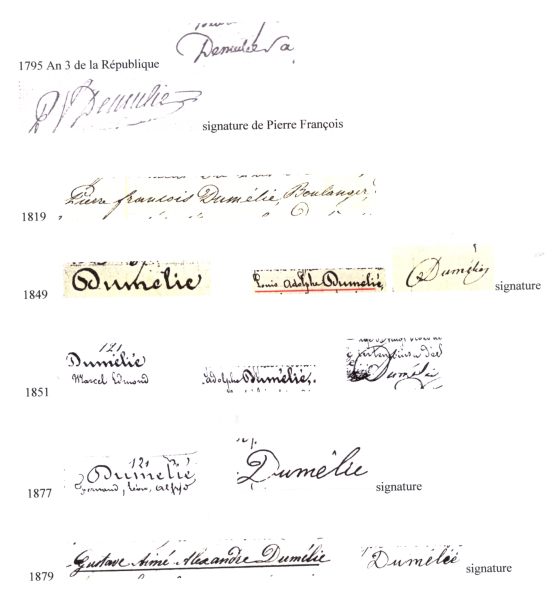 1795 An 3 de la République
signature de Pierre François
1819 Pierre francois Dumélie, Boulanger,
1849 Dumélie Louis adolphe Dumélié, Dumélie signature
121
1851 Dumélié adolphe Dumélie, Dumélie
Marcel Edmond
121
1877 Dumélie Dumélie signature
fernand, léon, alfred
1879 Gustave Aimé Alexandre Dumélie Dumélie signature